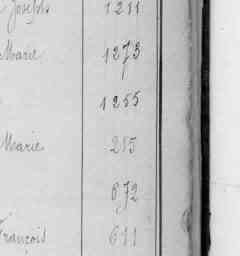 Joseph 1211
Marie 1273
1255
Marie 215
672
François 611